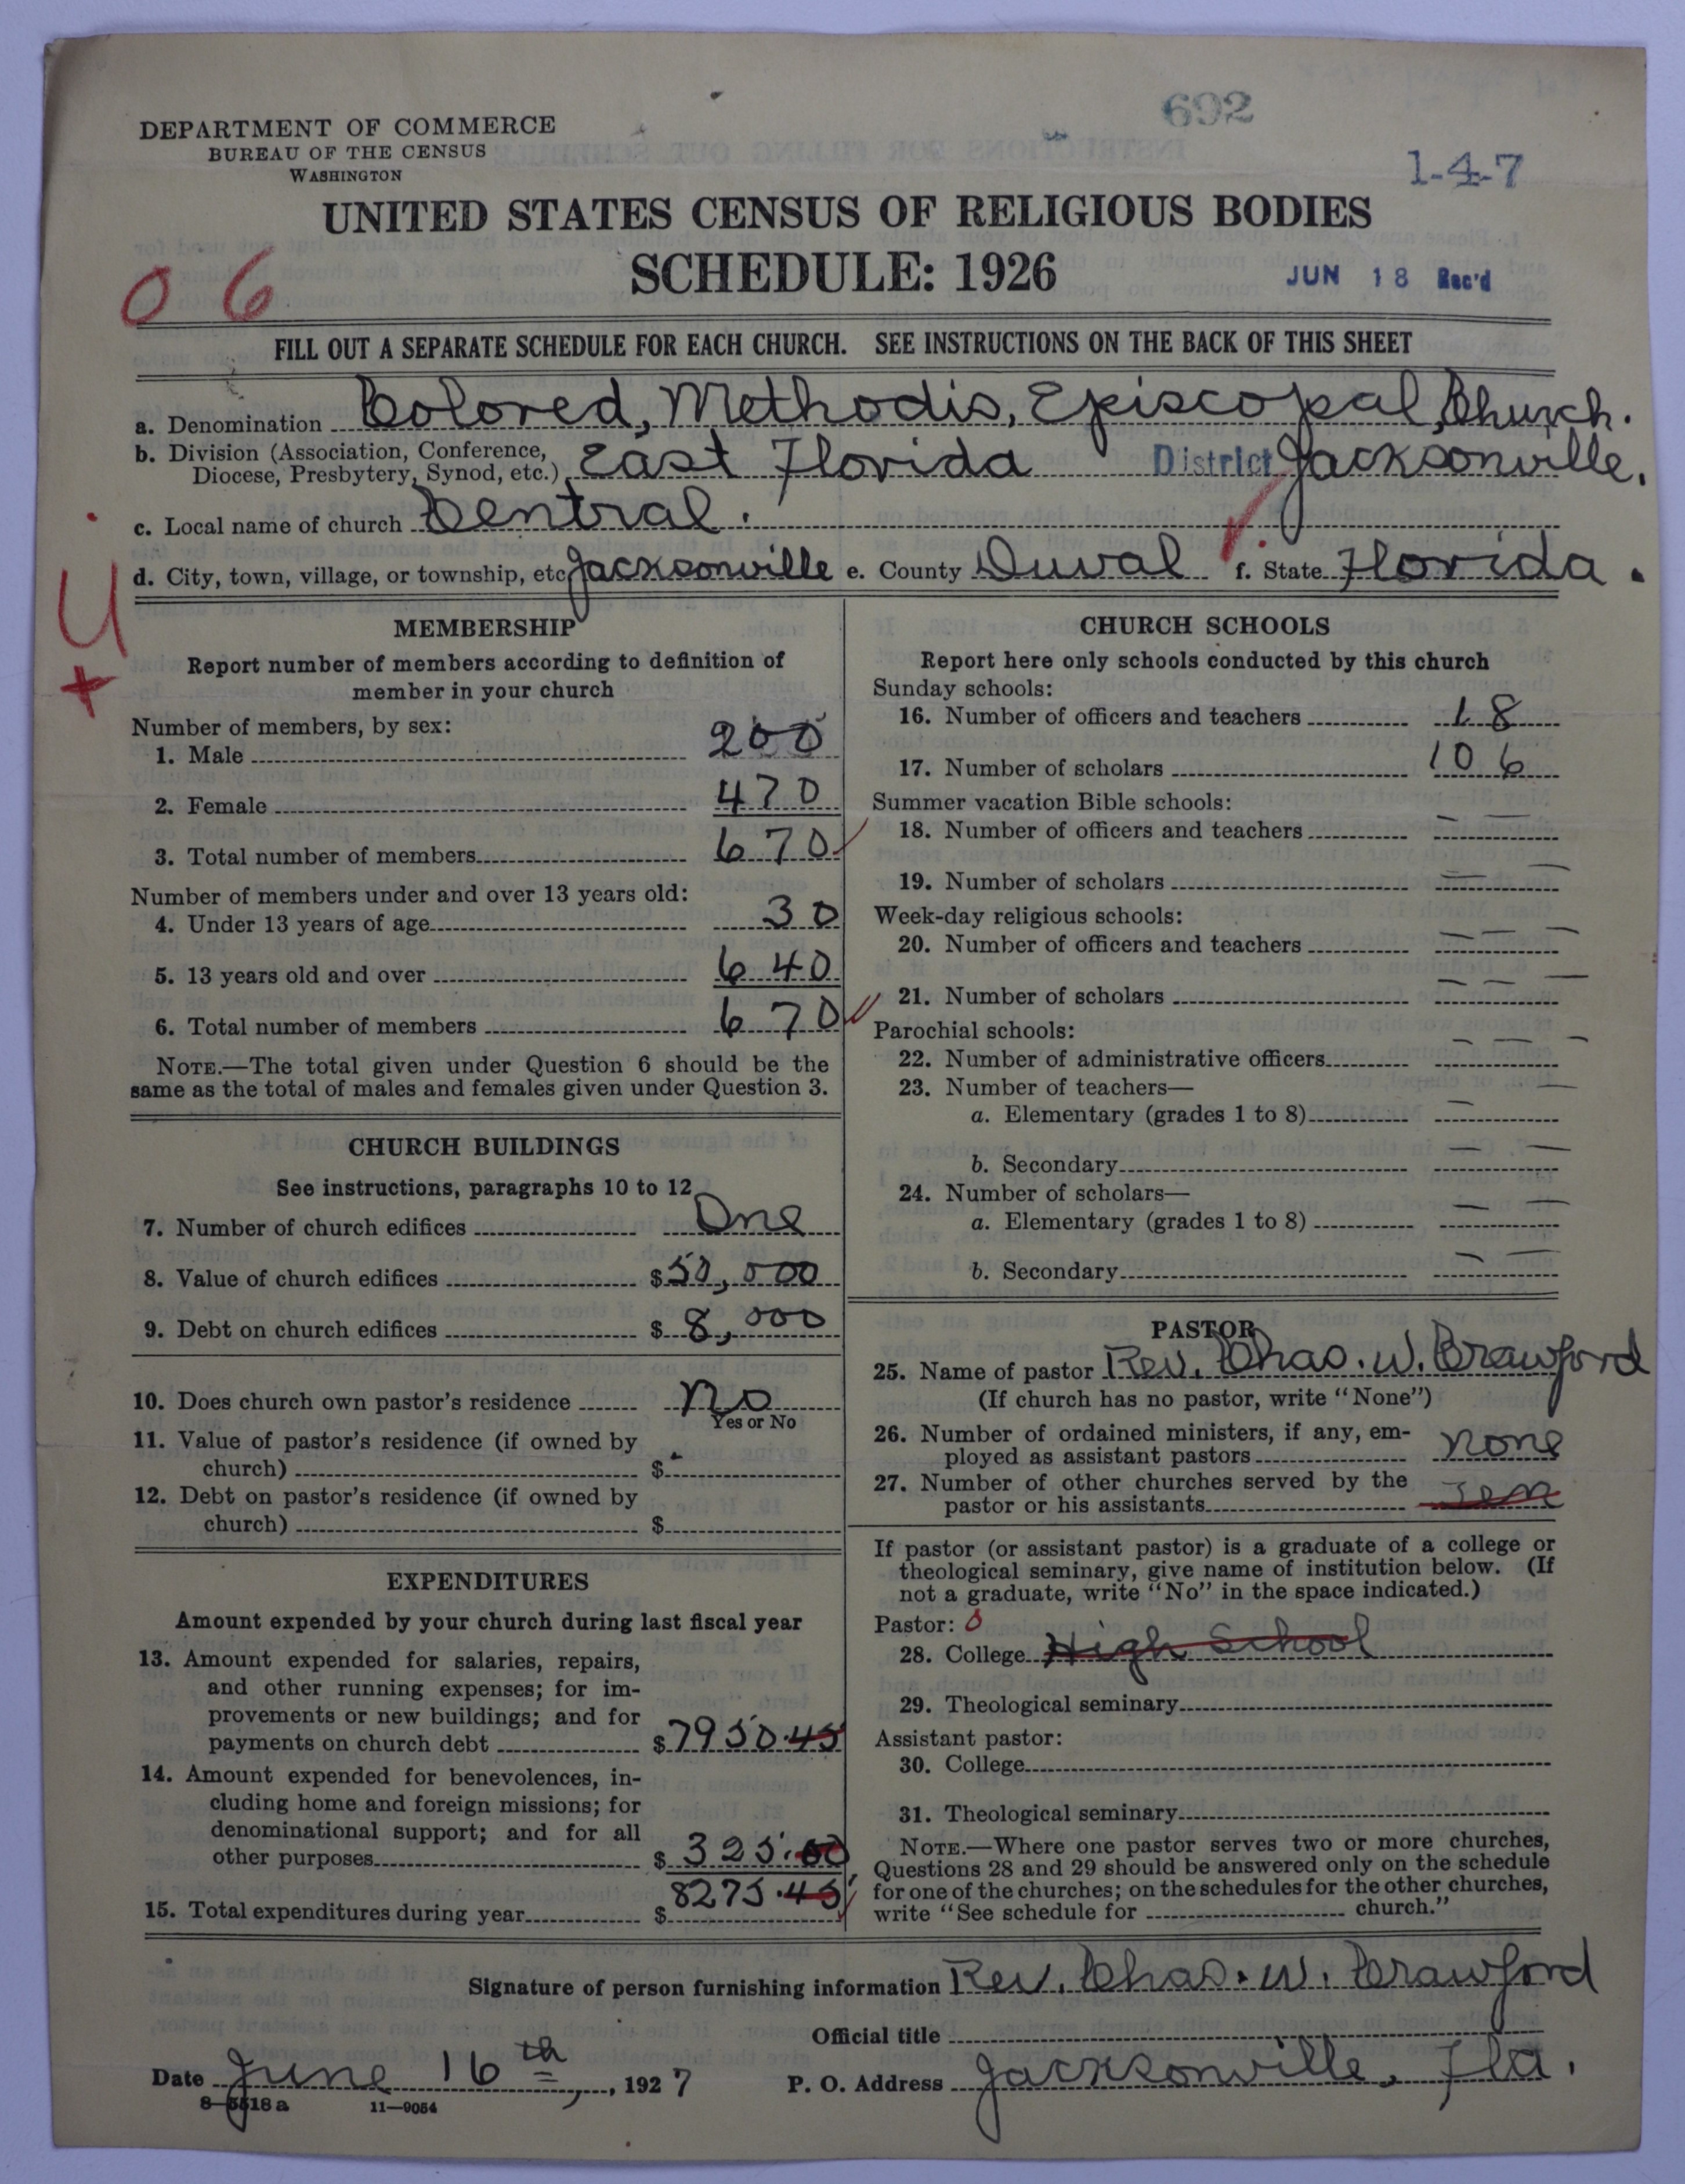 692
DEPARTMENT OF COMMERCE
BUREAU OF THE CENSUS
WASHINGTON
1-4-7
UNITED STATES CENSUS OF RELIGIOUS BODIES
SCHEDULE: 1926
JUN 18 Rec'd
0 6
FILL OUT A SEPARATE SCHEDULE FOR EACH CHURCH. SEE INSTRUCTIONS ON THE BACK OF THIS SHEET
a. Denomination Colored, Methodis, Episcopal, Church.
b. Division (Association, Conference,
Diocese, Presbytery, Synod, etc.) East Florida District Jacksonville.
c. Local name of church Central.
d. City, town, village, or township, etc Jacksonville e. County Duval f. State Florida.
U
+
MEMBERSHIP
Report number of members according to definition of
member in your church
Number of members, by sex:
1. Male 200
2. Female 470
3. Total number of members 670
Number of members under and over 13 years old:
4. Under 13 years of age 30
5. 13 years old and over 640
6. Total number of members 670
NOTE.—The total given under Question 6 should be the
same as the total of males and females given under Question 3.
CHURCH BUILDINGS
See instructions, paragraphs 10 to 12
7. Number of church edifices One
8. Value of church edifices $50,000
9. Debt on church edifices $8,000
10. Does church own pastor's residence No
Yes or No
11. Value of pastor's residence (if owned by
church) $ -
12. Debt on pastor's residence (if owned by
church) $
EXPENDITURES
Amount expended by your church during last fiscal year
13. Amount expended for salaries, repairs,
and other running expenses; for im-
provements or new buildings; and for
payments on church debt $7950.45
14. Amount expended for benevolences, in-
cluding home and foreign missions; for
denominational support; and for all
other purposes $325.00
15. Total expenditures during year $8275.45
CHURCH SCHOOLS
Report here only schools conducted by this church
Sunday schools:
16. Number of officers and teachers 18
17. Number of scholars 106
Summer vacation Bible schools:
18. Number of officers and teachers — — —
19. Number of scholars — —
Week-day religious schools:
20. Number of officers and teachers — — —
21. Number of scholars — — —
Parochial schools:
22. Number of administrative officers — — —
23. Number of teachers—
a. Elementary (grades 1 to 8) — —
b. Secondary — —
24. Number of scholars—
a. Elementary (grades 1 to 8) — —
b. Secondary — —
PASTOR
25. Name of pastor Rev. Chas. W. Crawford
(If church has no pastor, write "None")
26. Number of ordained ministers, if any, em-
ployed as assistant pastors none
27. Number of other churches served by the
pastor or his assistants
If pastor (or assistant pastor) is a graduate of a college or
theological seminary, give name of institution below. (If
not a graduate, write "No" in the space indicated.)
Pastor: 0
28. College High School
29. Theological seminary
Assistant pastor:
30. College
31. Theological seminary
NOTE.—Where one pastor serves two or more churches,
Questions 28 and 29 should be answered only on the schedule
for one of the churches; on the schedules for the other churches,
write "See schedule for church."
Signature of person furnishing information Rev. Chas. W. Crawford
Official title
Date June 16th, 1927 P. O. Address Jacksonville, Fla.
8-5518a 11-9054